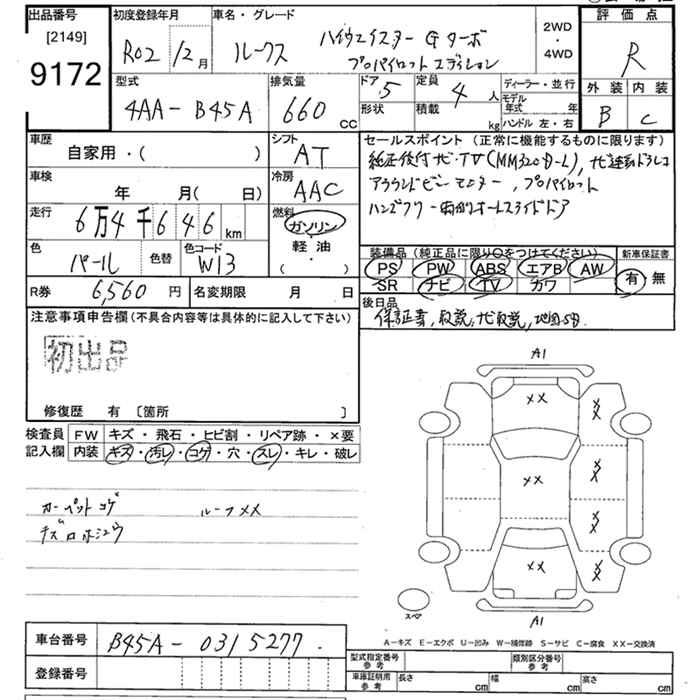 出品番号
[2149]
9172
初度登録年月
R02年12月
車名・グレード
ルークス ハイウェイスター Gターボ
プロパイロットエディション
2WD
・
4WD
評価点
R
外装 内装
B C
型式
4AA-B45A
排気量
660 CC
ドア 5
形状
定員 4 人
積載 kg
ディーラー・並行
モデル年式 年
ハンドル 左・右
車歴
自家用・( )
シフト
AT
車検
年 月( 日)
冷房
AAC
走行
6万4千646km
燃料
ガソリン
軽油
( )
色
パール
色替
色コード
W13
R券 6,560 円
名変期限 月 日
セールスポイント(正常に機能するものに限ります)
純正後付ナビ・TV(MM320D-L)、ナビ連動ドラレコ
アラウンドビューモニター、プロパイロット
ハンズフリー両側オートスライドドア
装備品(純正品に限り○をつけてください)
PS PW ABS エアB AW
SR ナビ TV カワ
新車保証書
有・無
後日品
保証書、取説、ナビ取説、
注意事項申告欄(不具合内容等は具体的に記入して下さい)
初出品
修復歴 有 〔箇所 〕
検査員記入欄
FW キズ・飛石・ヒビ割・リペア跡・×要
内装 キズ・汚レ・コゲ・穴・スレ・キレ・破レ
カーペットコゲ ルーフXX
チズロホシュウ
A1
XX
XX
XX
XX
XX
XX
XX
A1
スペア
A-キズ E-エクボ U-凹み W-補修跡 S-サビ C-腐食 XX-交換済
車台番号 B45A-0315277.
登録番号
型式指定番号 参考
類別区分番号 参考
車庫証明用 参考
長さ cm 幅 cm 高さ cm